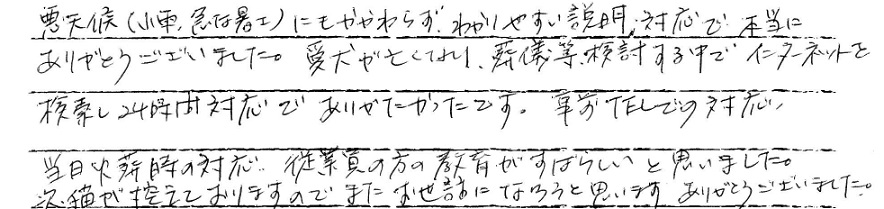 悪天候(小雨、急な暑さ)にもかかわらず、わかりやすい説明、対応で本当に
ありがとうございました。愛犬が亡くなり、葬儀等検討する中でインターネットを
検索し24時間対応でありがたかったです。事前TELでの対応、
当日火葬時の対応、従業員の方の教育がすばらしいと思いました。
次、猫が控えておりますのでまたお世話になろうと思います ありがとうございました。